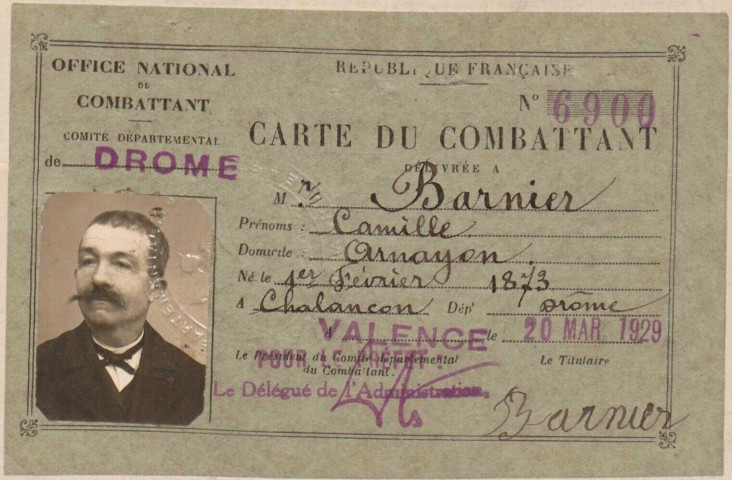 OFFICE NATIONAL
DU
COMBATTANT
COMITÉ DÉPARTEMENTAL
de DROME
REPUBLIQUE FRANÇAISE
N° 6900
CARTE DU COMBATTANT
DÉLIVRÉE A
M r Barnier
Prénoms : Camille
Domicile : Arnayon
Né le 1er Février 1873
A Chalancon Dépt Drôme
A VALENCE le 20 MAR 1929
Le Président du Comité départemental
du Combattant.
POUR
Le Délégué de l'Administration,
Le Titulaire
Barnier